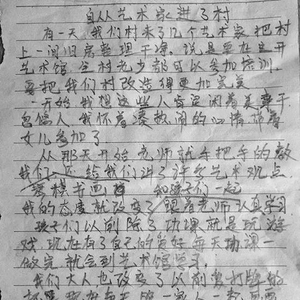 自从艺术家进了村
有一天,我们村来了几个艺术家把村
上一间旧房整理干净,说是要在里开
艺术馆全村老少都可以参加培训
要把我们村改造得更加完美
一开始我想这些人
包修人我怀着凑热闹的心情带着
女儿参加了
从那天开始老师就手把手的教
我们 还给我们讲了许多艺术观点
和孩子们一起
我的态度就改变了跟着老师认真学习
孩子们以前除了功课就是玩游
戏现在有了自己的爱好每天功课一
做完就会到艺术馆学习
我们大人也改变了以前